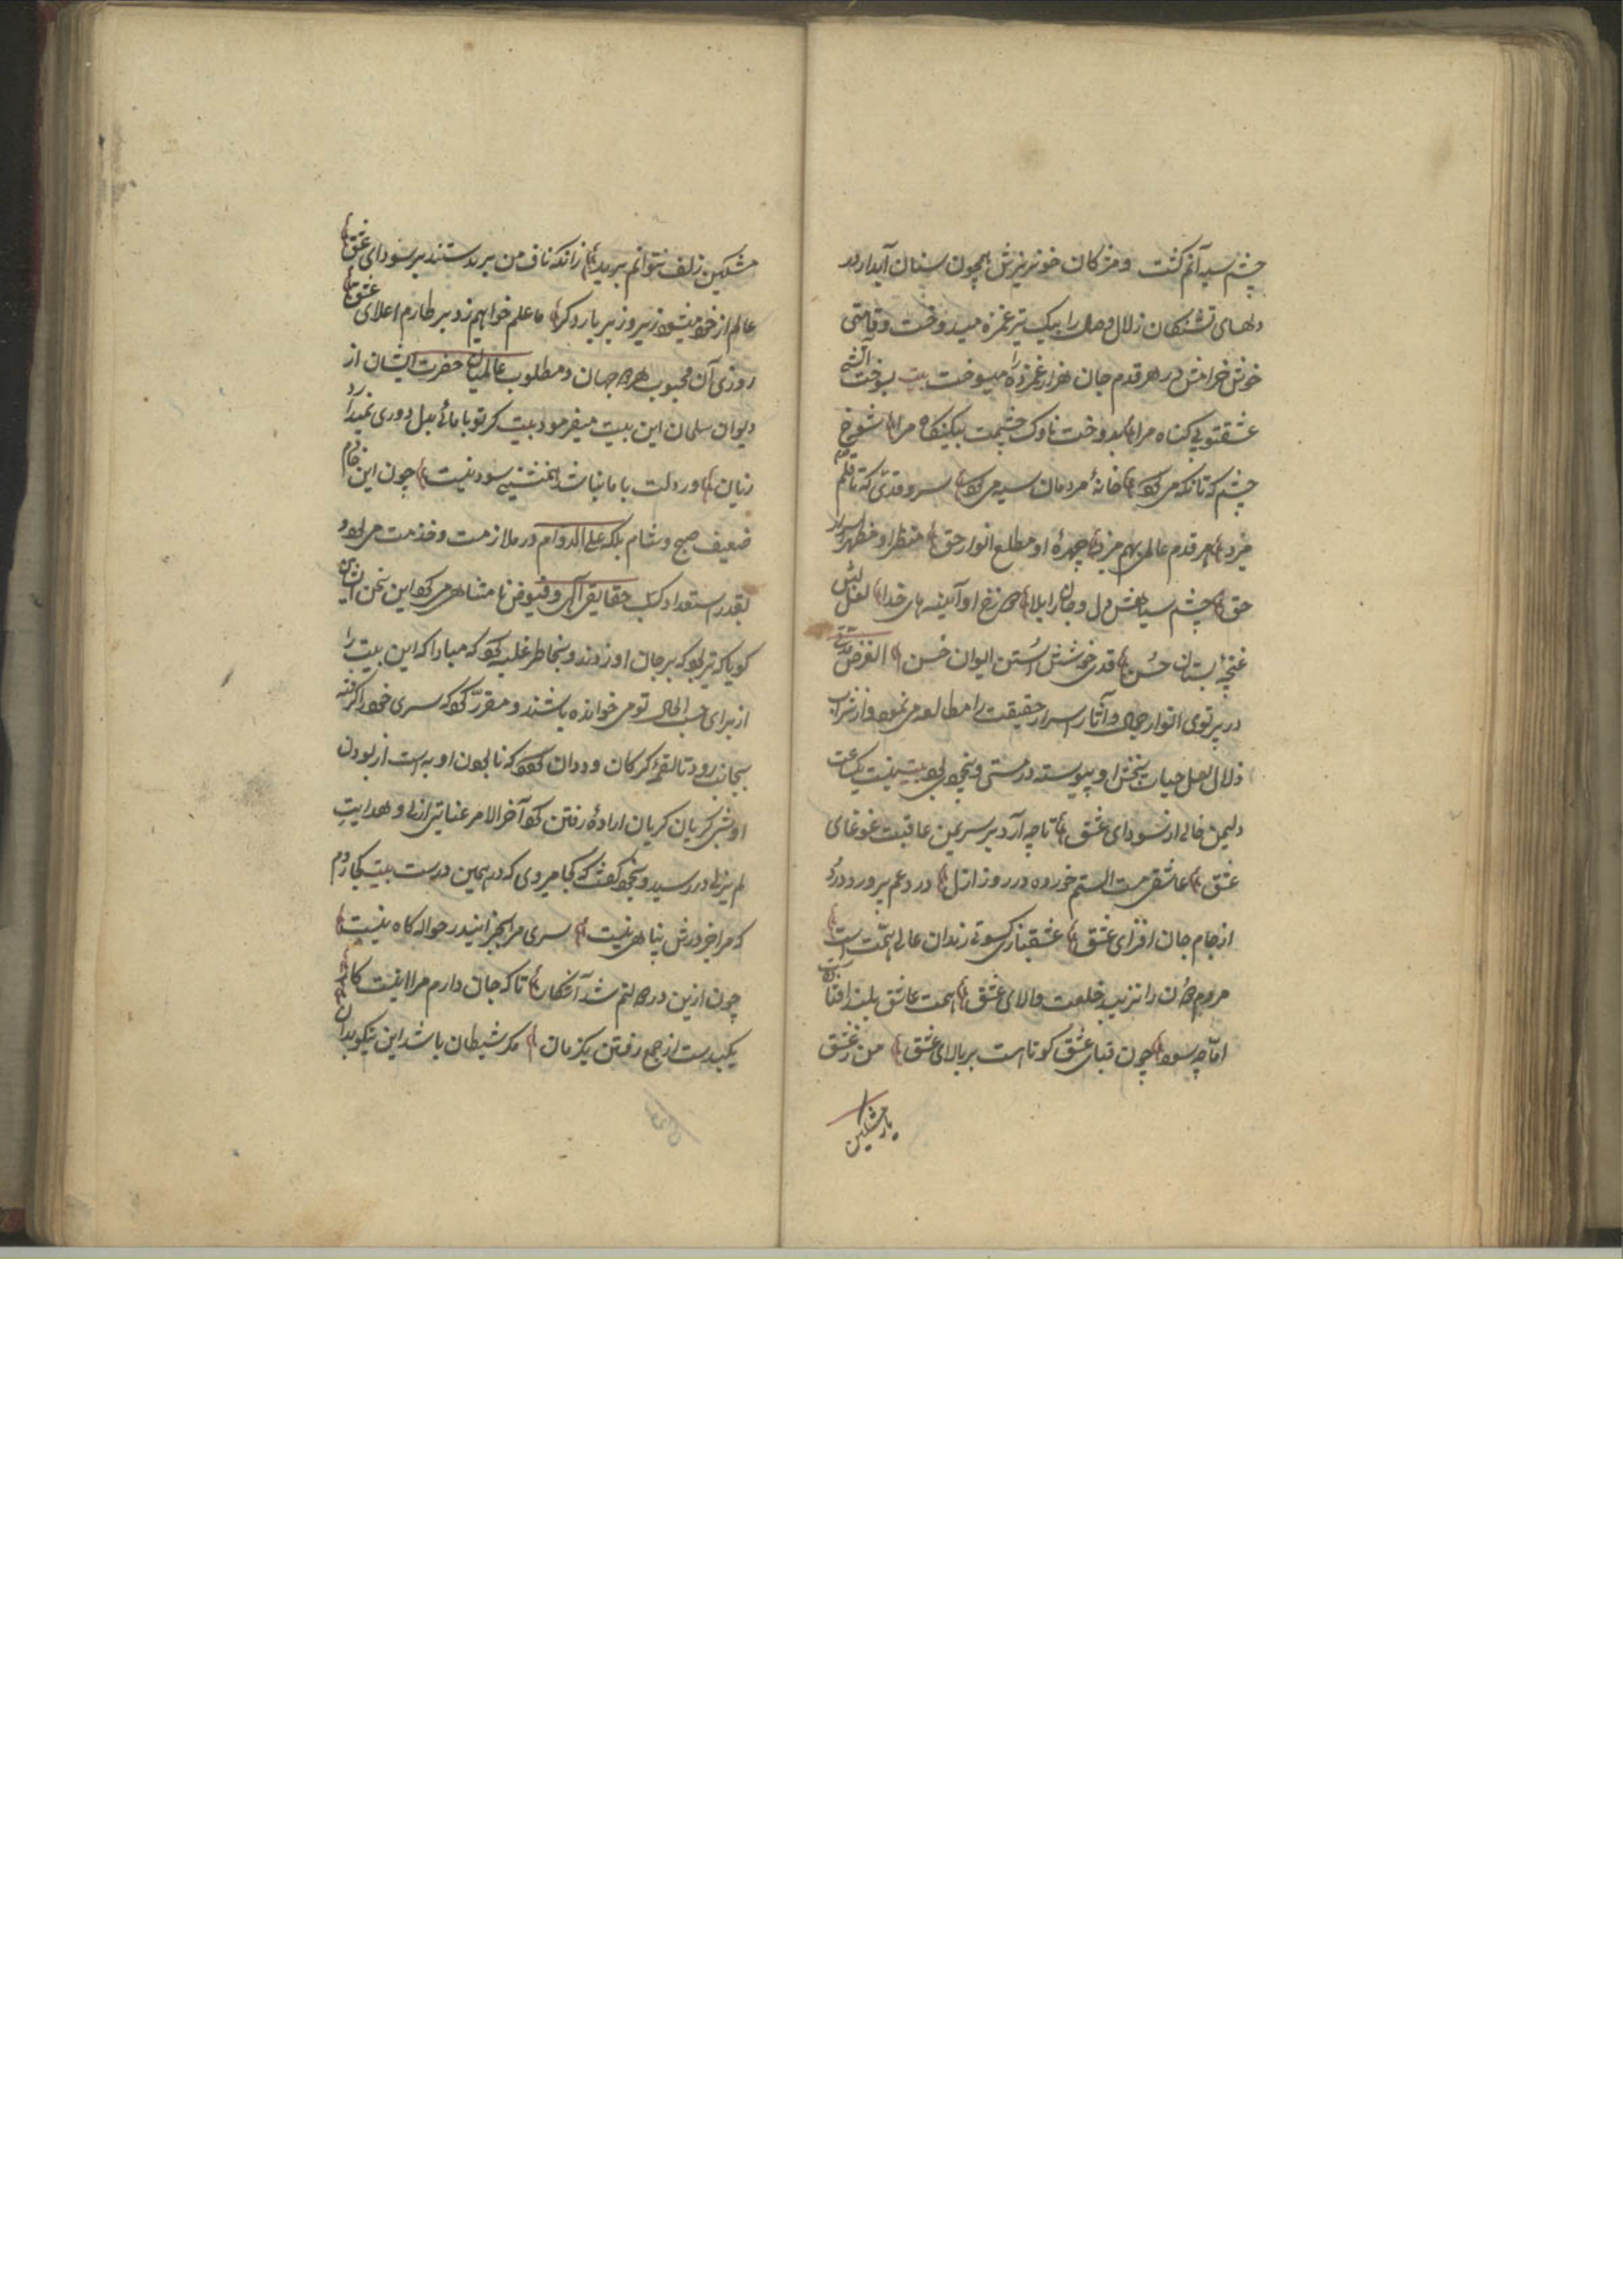 چشم سیه آنم کشت و مژکان خونریزش همچون سنان آبدار در
دلهای تشنکان زلال وصال را بیک تیر غمزه میدوخت و قامتی
خوش خرامش در هر قدم جان هزار غمزده را میسوخت بیت بسوخت آتش
عشقتو بی کناه مرا بدوخت ناوک چشمت بیکنکاه مرا شوخ
چشم که تا نکه می کرد خانهٔ مردمان سیه می کرد سرو قدی که تا قدم
میزد هر قدم عالمی بهم میزد چهرهٔ او مطلع انوار حق منظر او مظهر اسرار
حق چشم سیاهش دل و جان را بلا رخ او آیینه های خدا لعل لبش
غنچهٔ بستان حسن قد خوشش استن ایوان حسن الغرض مدتی
در پرتوی انوار جمال و آثار اسرار حقیقت را مطالعه می نمود و از شراب
زلال لعل حیات بخش او پیوسته در مستی و بیخود بود بیت نیست یکساعت
دلیمن خالی از سودای عشق تا چه آرد بر سریمن عاقبت غوغای
عشق عاشقی مست الستم خورده در روز ازل درد غم پرورد درد
از جام جان افزای عشق عشقبازی کسوتی رندان عالی همت است
مردم دون را نزیبد خلعت والای عشق همت عاشق بلند افتاد
اما چه سود چون قبای عشق کوتاست بر بالای عشق من ز عشق
یار مشکین
مشکین زلف نتوانم برید زانکه ناف من بریدستند بر سودای عشق
عالم از خود میشود زیر و زبر بار دکر ما علم خواهیم زد بر طارم اعلای عشق
روزی آن محبوب هر دو جهان و مطلوب عالمیان حضرت ایشان از
دیوان سلمان این بیت میفرمود بیت کر تو با مائی بدل دوری نمیدارد
زیان ور دلت با ما نباشد همنشینی سود نیست چون این خادم
ضعیف صبح و شام بلکه علی الدوام در ملازمت و خدمت می بود و
بقدر استعداد کسب حقایق آلهی و فیوض نامتناهی می کرد این سخن ایشان
کویا که تیر بود که بر جان او زدند و بخاطر غلبه کرد که مبادا که این بیت را
از برای حسب الحال تو می خوانده باشند و مقرر کرد که سری خود را کرفته
بجانبی رود تا لقمهٔ کرکان و ددان کردد که نابودن او به است از بودن
او شبی کریان کریان ارادهٔ رفتن کرد آخر الامر عنایتی ازلی و هدایتِ
لم یزلی در رسید و بخود کفت که کجا میروی که در همین در است بیت کجا روم
که مرا جز درش پناهی نیست سری مرا بجز این در حواله کاه نیست
چون ازین در حالتم شد آشکار تا که جان دارم مرا اینست کار
یکبدست از جمع رفتن یکزمان مکر شیطان باشد این نیکو بدان